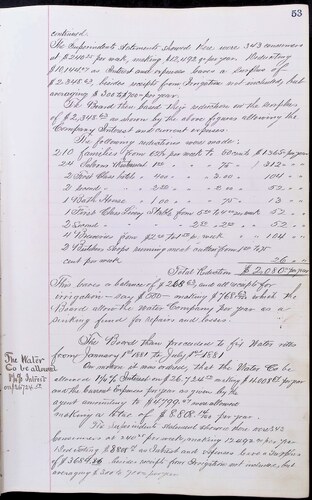 53
continued.
The Superintendent statement showed there were 343 consumers
at $240 25 per week, making $12,493 00 per year. Deducting
$10,144 as Interest and expenses leaves a surplus of
$2,348 besides receipts from Irrigation not included, but
averaging $300 to $700 per year.
The Board then based their reductions on the surplus
of $2,348 as shown by the above figures allowing the
Company Interest and current expenses.
The following reductions were made:
210 families from 62½ per week to 50 cents $1365 per year
24 Saloons 1 00 " " 75 " 312 " "
2 First Class hotels " 4 00 " " 3 00 " 104 " "
2 Second " " 2 50 " " 2 00 " 52 " "
1 Bath House " 1 00 " " 75 " 13 " "
1 First Class Livery Stable from 5 00 to 4 00 per week 52 " "
2 Second " " " 2 50 " 2 00 " 52 " "
" " 104 " "
2 Butcher Shops from 1 00 to 75
cents per week 26 " "
Total Reduction $2,080 per year
This leaves a balance of $268 and all receipts for
irrigation — say $500 — making $768 which the
Board allow the Water Company per year as a
sinking fund for repairs and losses.
The Board then proceeded to fix Water rates
from January 1st 1881 to July 1st 1881
The Water
Co be allowed
Interest
on
On motion it was ordered, that the Water Co be
allowed Interest on $26,724 making per year
and the Current Expenses per year as given by the
agent amounting to $4799 were allowed
making a total of $8,808 per year.
The Superintendent statement shows there were 343
Consumers at 240 25 per week, making 12,493 per year
Deducting $8808 as Interest and Expenses leaves a Surplus
of $3684.86 besides receipts from Irrigation not included, but
averaging $300 to $700 per year.